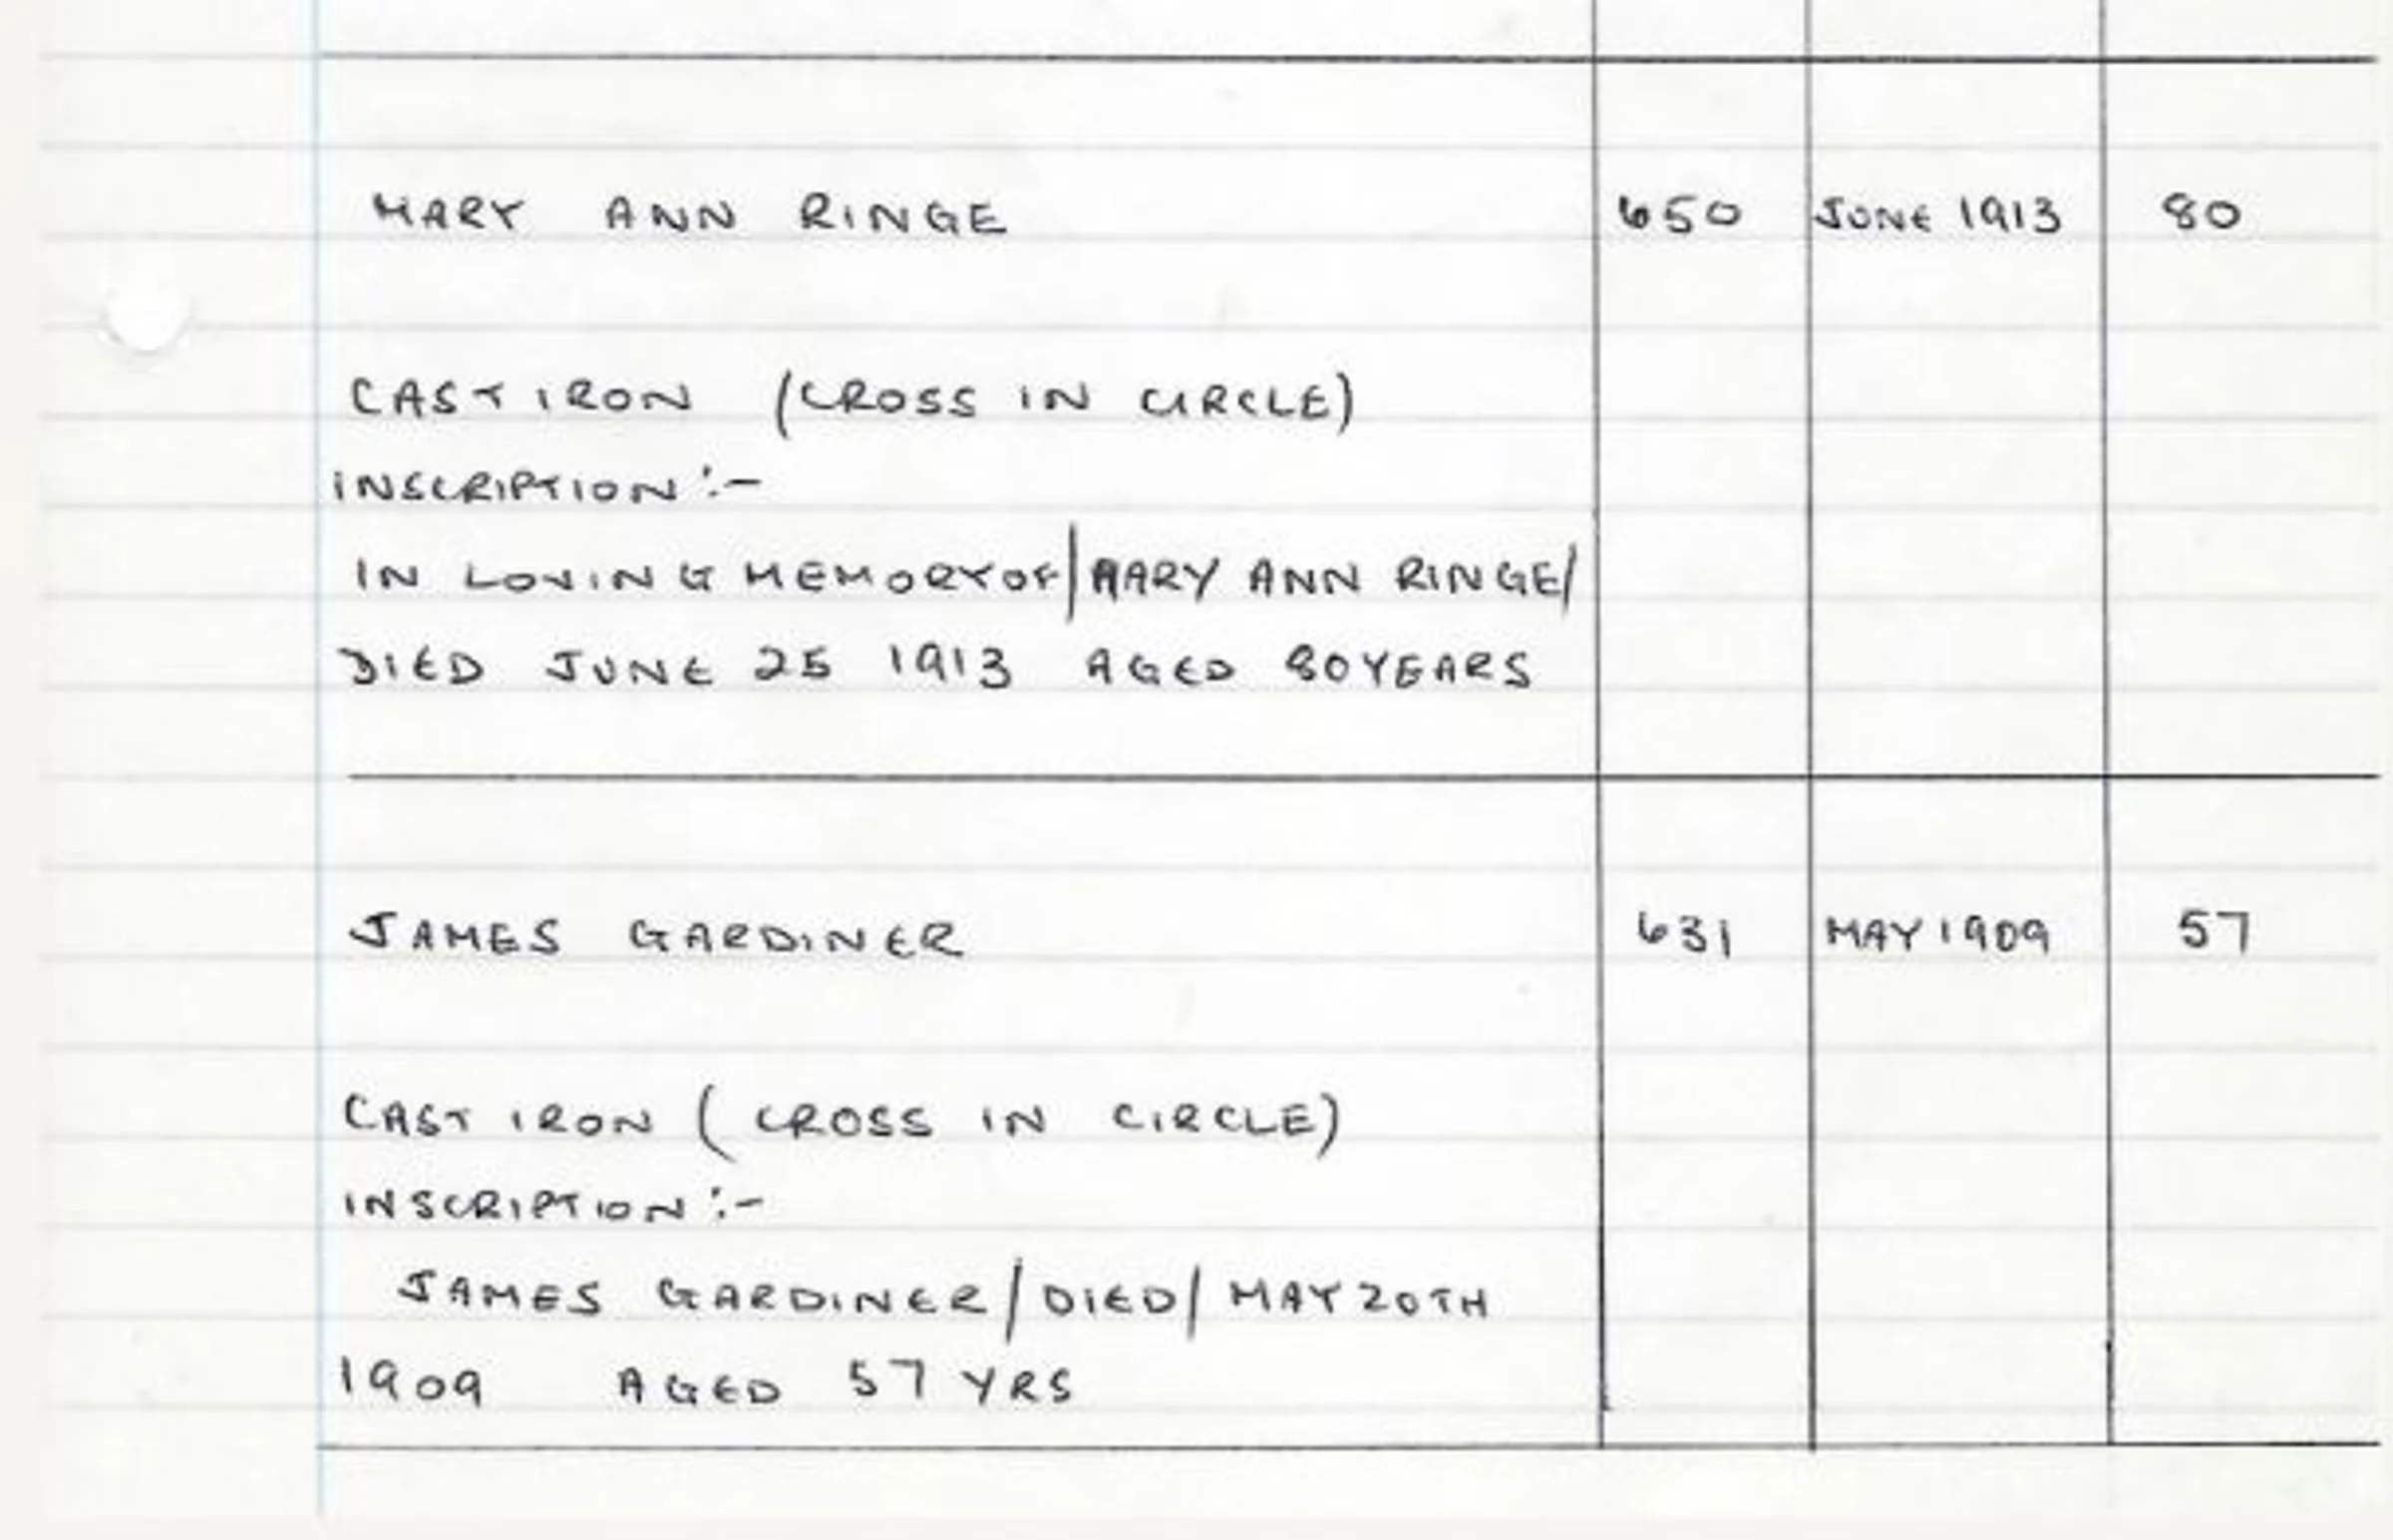 MARY ANN RINGE 650 JUNE 1913 80
CAST IRON (CROSS IN CIRCLE)
INSCRIPTION :-
IN LOVING MEMORY OF/MARY ANN RINGE/
DIED JUNE 25 1913 AGED 80 YEARS
JAMES GARDINER 631 MAY 1909 57
CAST IRON (CROSS IN CIRCLE)
INSCRIPTION :-
JAMES GARDINER/DIED/MAY 20TH
1909 AGED 57 YRS